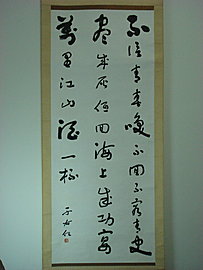 不信青春喚不回不容青史
盡成灰低回海上成功宴
萬里江山酒一杯
于右任